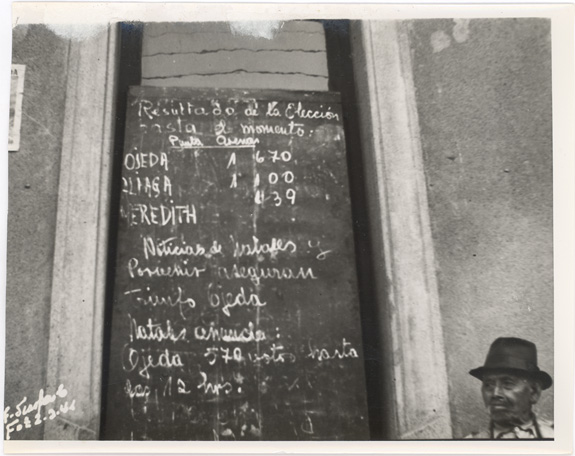 Resultado de la Elección
hasta el momento:
Punta Arenas
OJEDA 1 670.
ALIAGA 1 100
MEREDITH 439
Noticias de Natales y
Porvenir aseguran
Triunfo Ojeda
Natales anuncia:
Ojeda 570 votos hasta
las 12 hrs.
Fot 2-3-41